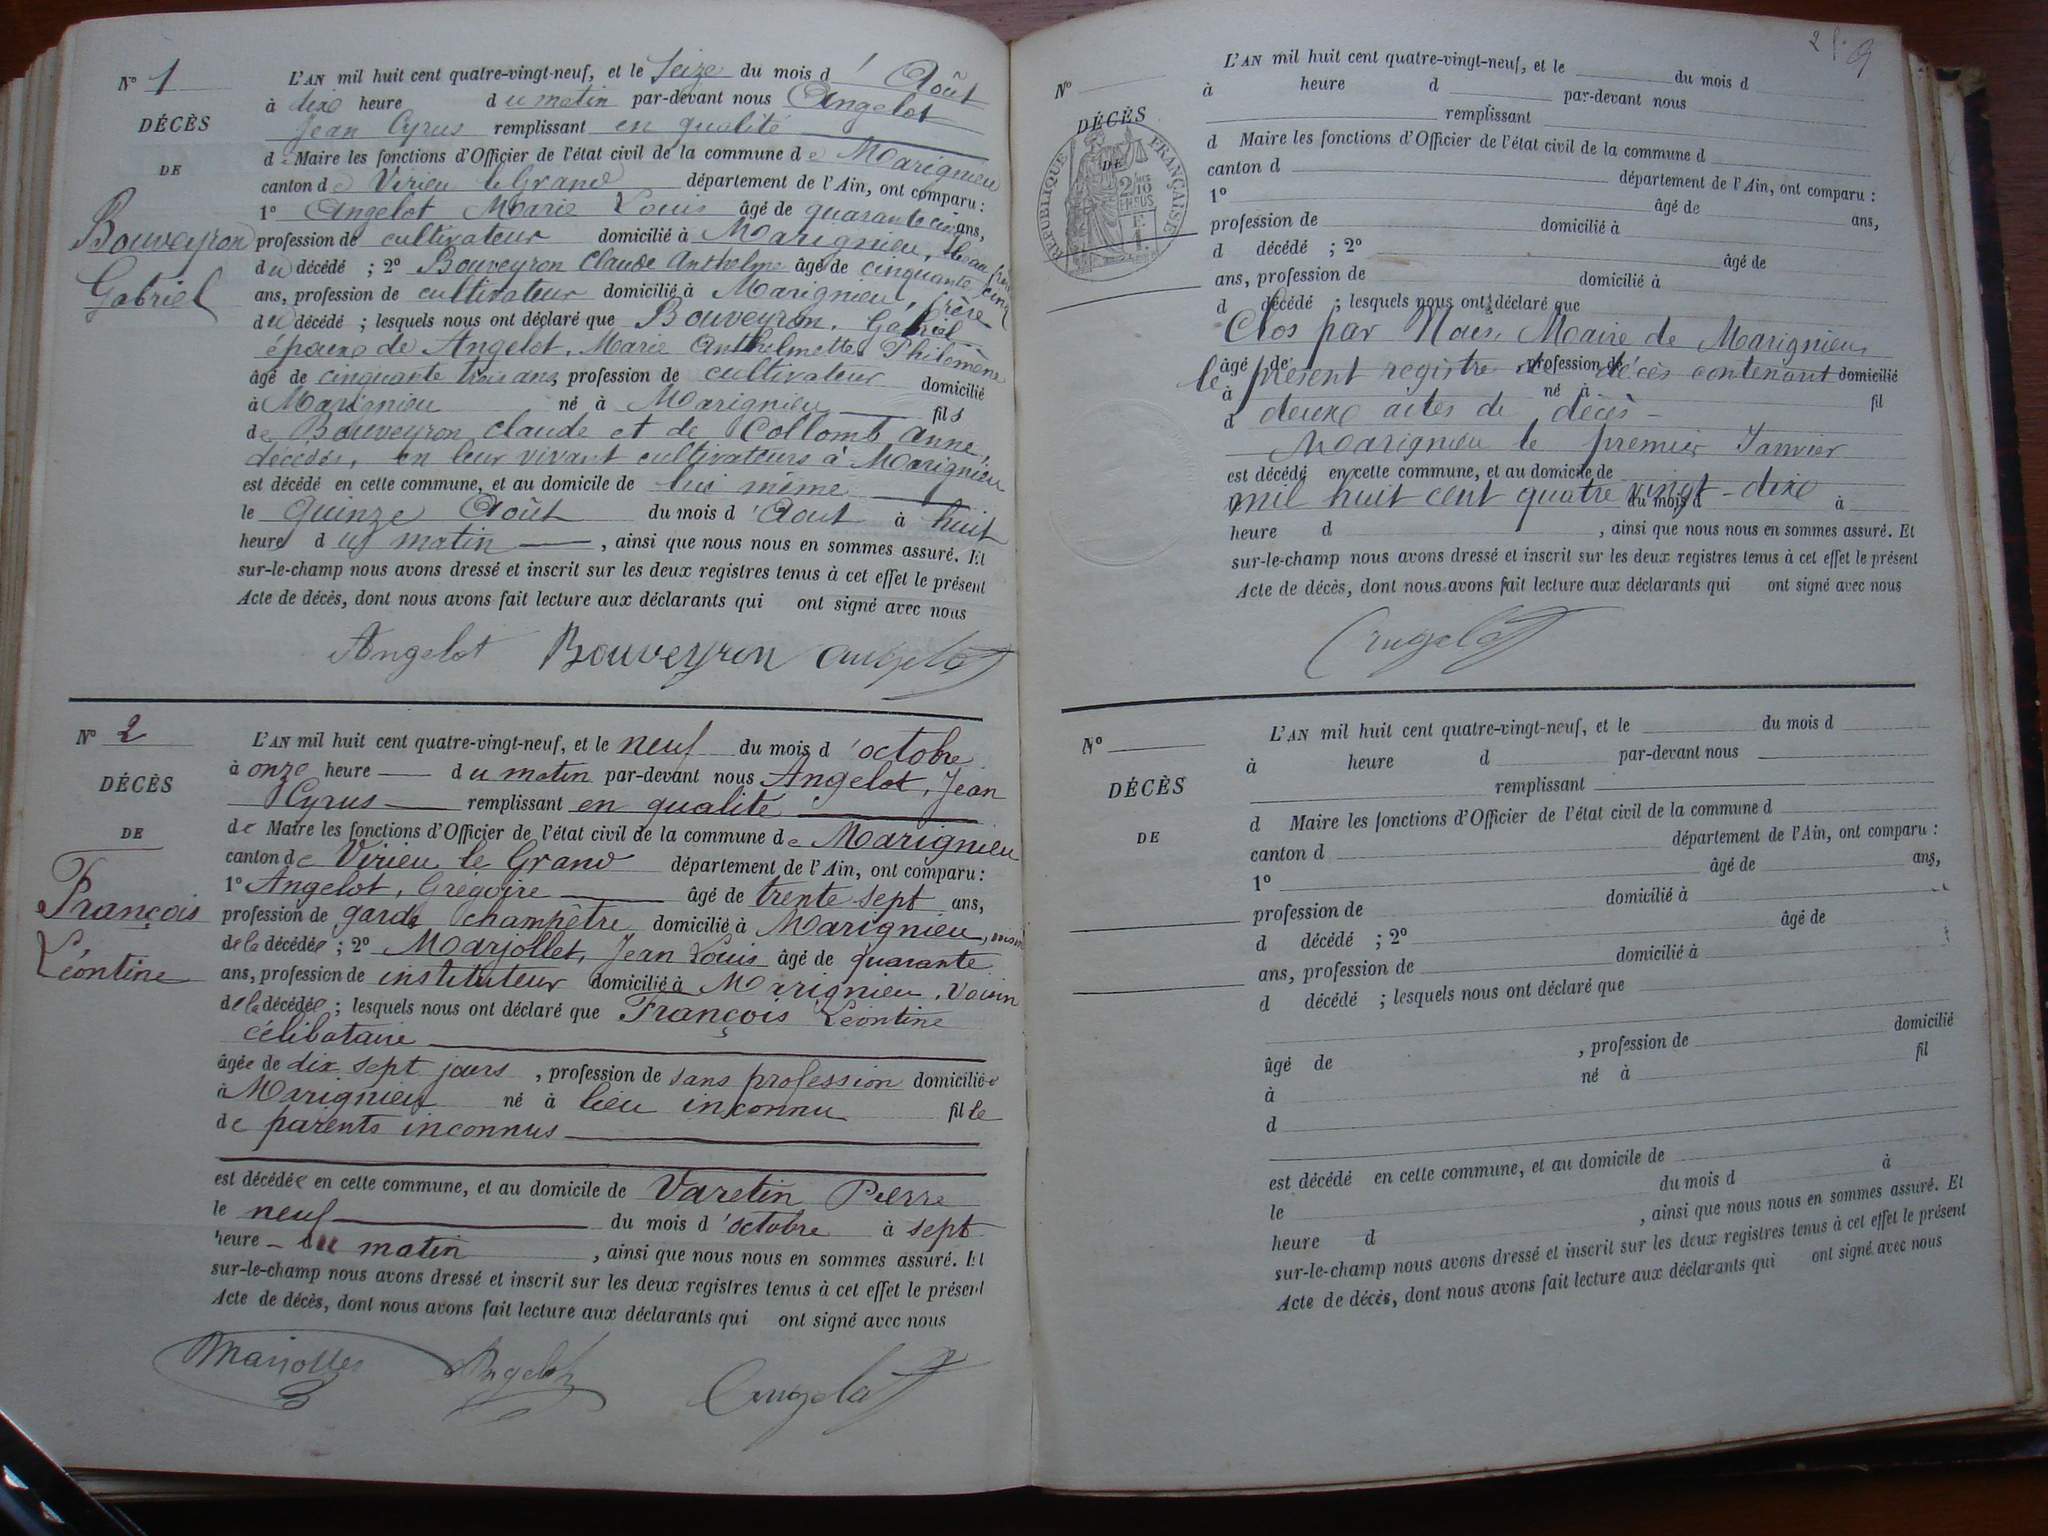 N° 1
DÉCÈS
DE
Bouveyron
Gabriel
L'AN mil huit cent quatre-vingt-neuf, et le Seize du mois d'Août
à dixe heure du matin par-devant nous Angelot
Jean Cyrus remplissant en qualité
de Maire les fonctions d'Officier de l'état civil de la commune de Marignieu
canton de Virieu le Grand département de l'Ain, ont comparu :
1° Angelot Marie Louis âgé de quarante cinq ans,
profession de cultivateur domicilié à Marignieu, Beau frère
du décédé ; 2° Bouveyron Claude Anthelme âgé de cinquante cinq
ans, profession de cultivateur domicilié à Marignieu, frère
du décédé ; lesquels nous ont déclaré que Bouveyron, Gabriel
époux de Angelot, Marie Anthelmette Philomène
âgé de cinquante trois ans, profession de cultivateur domicilié
à Marignieu né à Marignieu fils
de Bouveyron Claude et de Collomb Anne,
décédés, en leur vivant cultivateurs à Marignieu
est décédé en cette commune, et au domicile de lui même
le Quinze Août du mois d'Aout à huit
heure du matin , ainsi que nous nous en sommes assuré. Et
sur-le-champ nous avons dressé et inscrit sur les deux registres tenus à cet effet le présent
Acte de décès, dont nous avons fait lecture aux déclarants qui ont signé avec nous
Angelot Bouveyron Angelot
N° 2
DÉCÈS
DE
François
Léontine
L'AN mil huit cent quatre-vingt-neuf, et le neuf du mois d'octobre
à onze heure du matin par-devant nous Angelot, Jean
Cyrus remplissant en qualité
de Maire les fonctions d'Officier de l'état civil de la commune de Marignieu
canton de Virieu le Grand département de l'Ain, ont comparu :
1° Angelot, Grégoire âgé de trente sept ans,
profession de garde champêtre domicilié à Marignieu, voisin
de la décédée ; 2° Marjollet, Jean Louis âgé de quarante
ans, profession de instituteur domicilié à Marignieu, voisin
de la décédée ; lesquels nous ont déclaré que François Léontine
célibataire
âgée de dix sept jours , profession de sans profession domiciliée
à Marignieu né à lieu inconnu fille
de parents inconnus
est décédée en cette commune, et au domicile de Varetin Pierre
le neuf du mois d'octobre à sept
heure du matin , ainsi que nous nous en sommes assuré. Et
sur-le-champ nous avons dressé et inscrit sur les deux registres tenus à cet effet le présent
Acte de décès, dont nous avons fait lecture aux déclarants qui ont signé avec nous
Marjollet Angelot Angelot
N°
DÉCÈS
DE
RÉPUBLIQUE FRANÇAISE
L'AN mil huit cent quatre-vingt-neuf, et le du mois d
à heure d par-devant nous
remplissant
d Maire les fonctions d'Officier de l'état civil de la commune d
canton d département de l'Ain, ont comparu :
1° âgé de ans,
profession de domicilié à
d décédé ; 2° âgé de
ans, profession de domicilié à
d décédé ; lesquels nous ont déclaré que
Clos par Nous, Maire de Marignieu,
âgé de profession de domicilié
le présent registre de décès contenant
à né à fil
d deuxe actes de décès
Marignieu le premier Janvier
est décédé en cette commune, et au domicile de
mil huit cent quatre vingt-dixe
le du mois d à
heure d , ainsi que nous nous en sommes assuré. Et
sur-le-champ nous avons dressé et inscrit sur les deux registres tenus à cet effet le présent
Acte de décès, dont nous avons fait lecture aux déclarants qui ont signé avec nous
Angelot
N°
DÉCÈS
DE
L'AN mil huit cent quatre-vingt-neuf, et le du mois d
à heure d par-devant nous
remplissant
d Maire les fonctions d'Officier de l'état civil de la commune d
canton d département de l'Ain, ont comparu :
1° âgé de ans,
profession de domicilié à
d décédé ; 2° âgé de
ans, profession de domicilié à
d décédé ; lesquels nous ont déclaré que
âgé de , profession de domicilié
à né à fil
d
est décédé en cette commune, et au domicile de
le du mois d à
heure d , ainsi que nous nous en sommes assuré. Et
sur-le-champ nous avons dressé et inscrit sur les deux registres tenus à cet effet le présent
Acte de décès, dont nous avons fait lecture aux déclarants qui ont signé avec nous